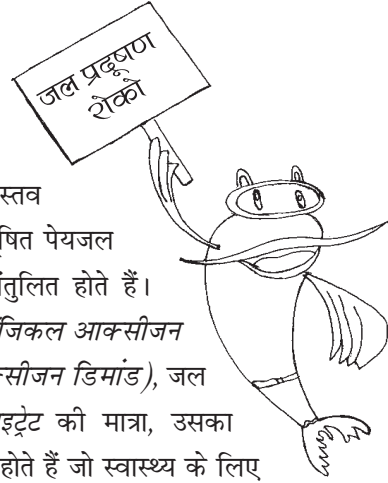 जल प्रदूषण
रोको
स्तव
षित पेयजल
ंतुलित होते हैं।
जिकल आक्सीजन
क्सीजन डिमांड), जल
इट्रेट की मात्रा, उसका
होते हैं जो स्वास्थ्य के लिए